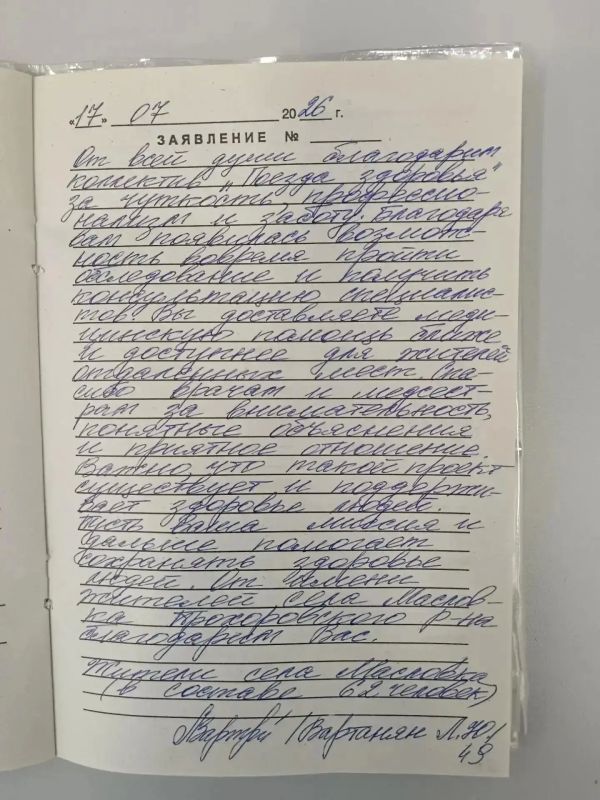 «17» 07 2026 г.
ЗАЯВЛЕНИЕ №
От всей души благодарим
коллектив "Поезда здоровья"
за чуткость, профессио-
нализм и заботу. Благодаря
вам появилась возмож-
ность вовремя пройти
обследование и получить
консультацию специалис-
тов. Вы доставляете меди-
цинскую помощь ближе
и доступнее для жителей
отдаленных мест. Спа-
сибо врачам и медсест-
рам за внимательность,
понятные объяснения
и приятное отношение.
Важно, что такой проект
существует и поддержи-
вает здоровье людей.
Пусть ваша миссия и
дальше помогает
сохранять здоровье
людей. От имени
жителей села Маслов-
ка Прохоровского р-на
благодарим Вас.
Жители села Масловка
(в составе 62 человек)
/Вартанян Л.Ю/
49